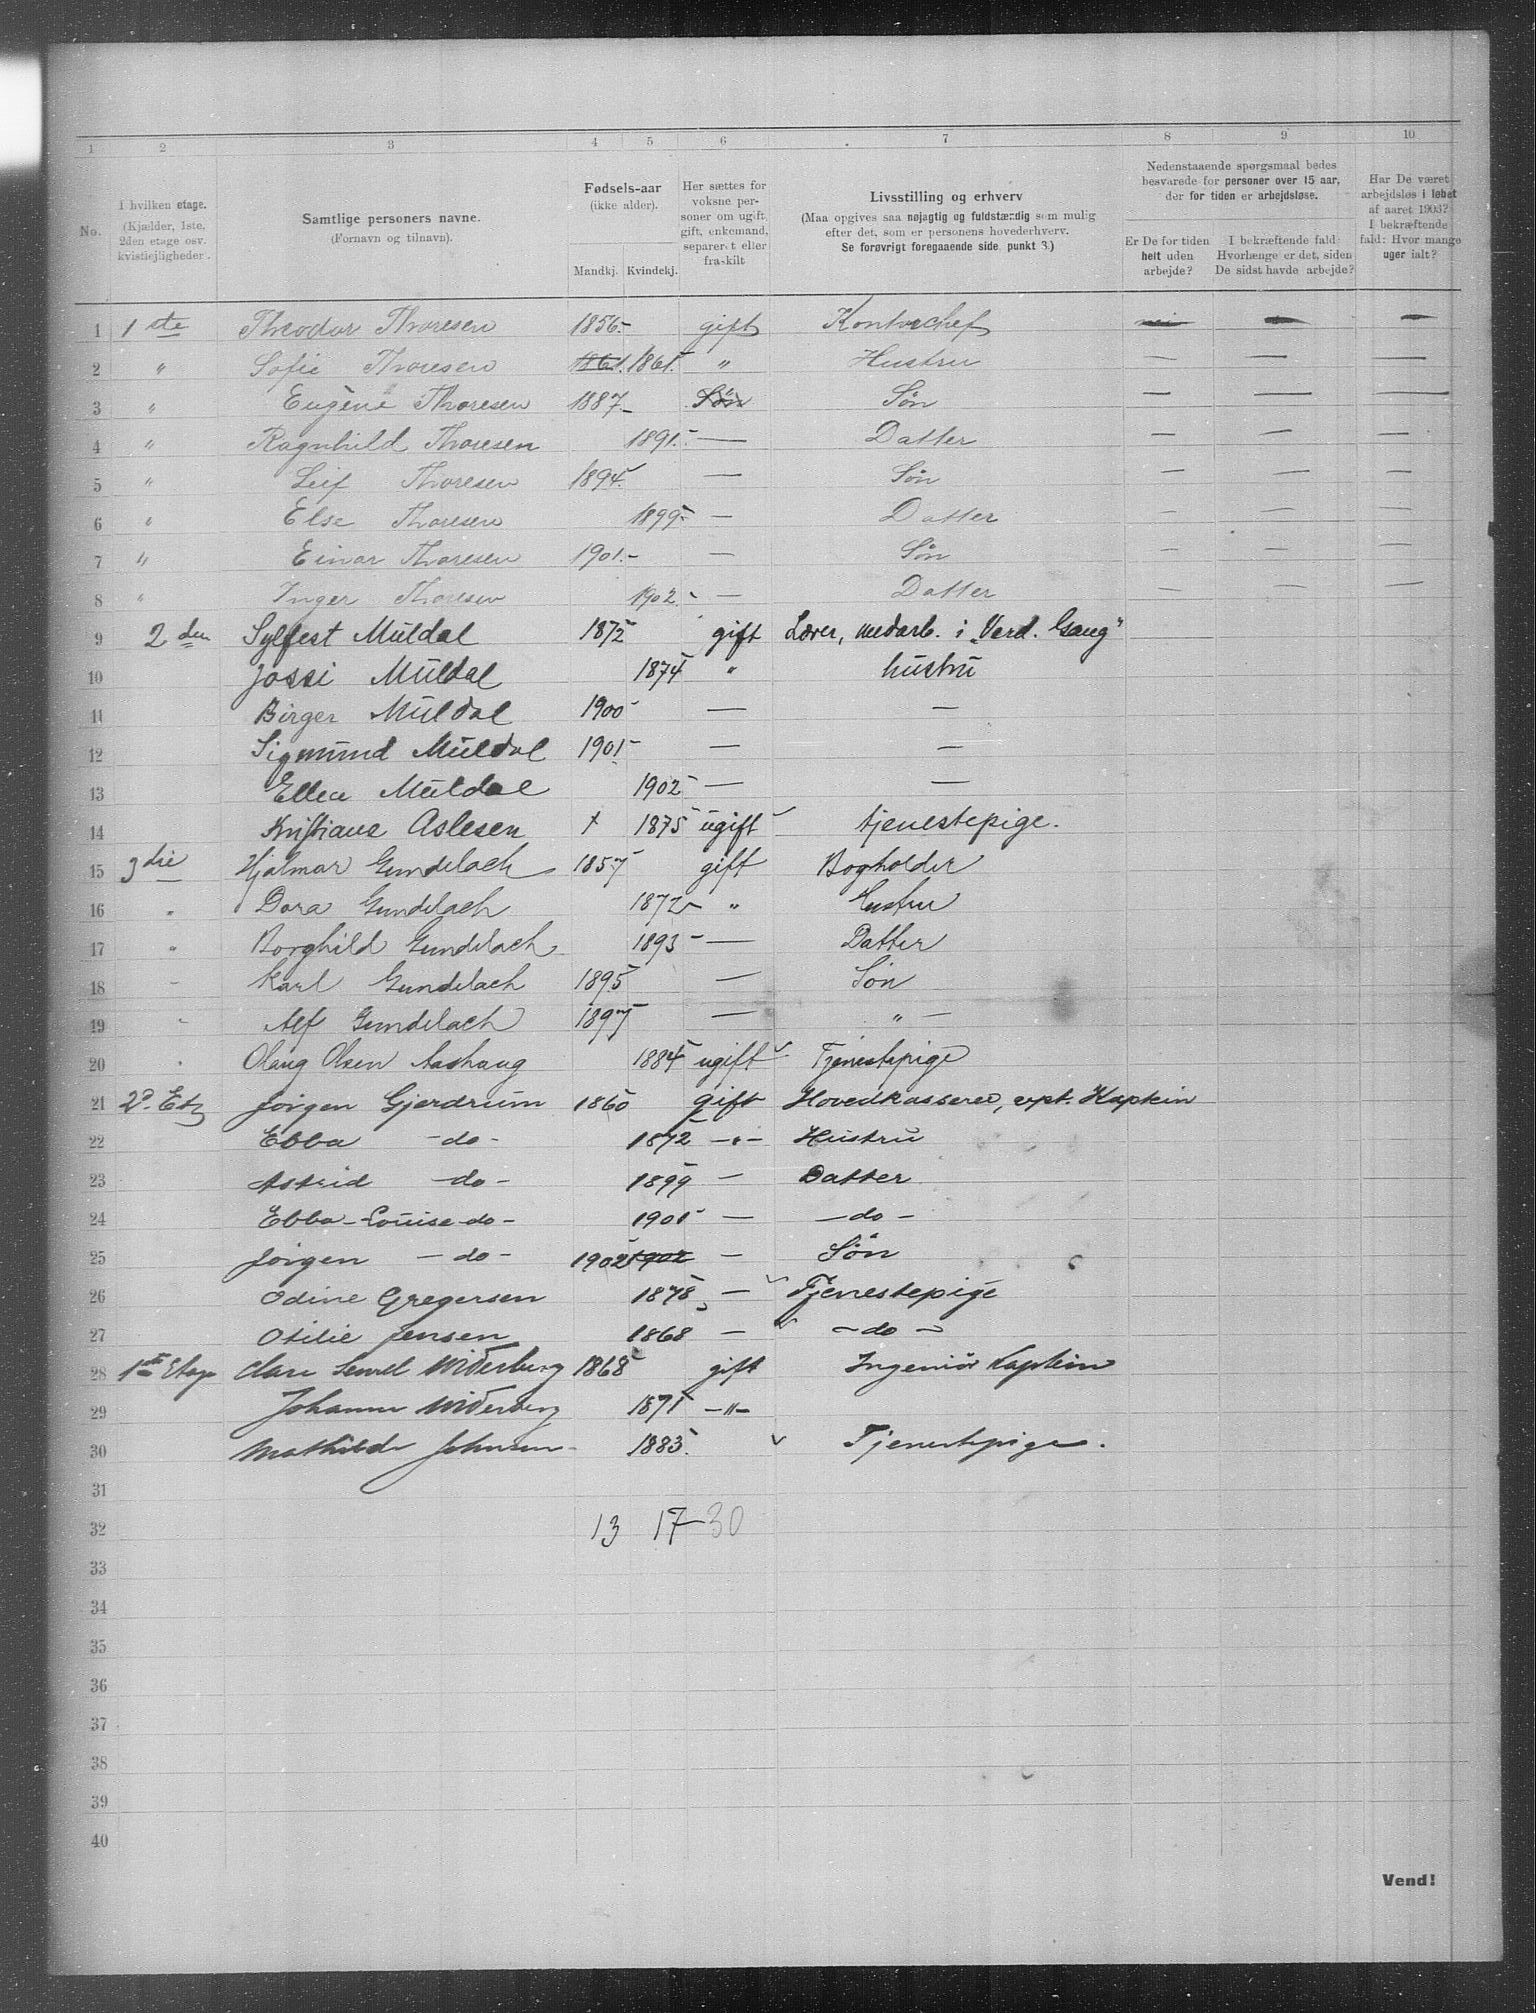 1 2 3 4 5 6 7 8 9 10
No.
I hvilken etage. (Kjælder, 1ste, 2den etage osv. kvistlejligheder.
Samtlige personers navne. (Fornavn og tilnavn).
Fødsels-aar (ikke alder).
Mandkj. Kvindekj.
Her sættes for voksne personer om ugift, gift, enkemand, separeret eller fraskilt
Livsstilling og erhverv
(Maa opgives saa nøjagtig og fuldstændig som mulig efter det, som er personens hovederhverv.
Se forøvrigt foregaaende side, punkt 3.)
Nedenstaaende spørgsmaal bedes besvarede for personer over 15 aar, der for tiden er arbejdsløse.
Er De for tiden helt uden arbejde?
I bekræftende fald: Hvorlænge er det, siden De sidst havde arbejde?
Har De været arbejdsløs i løbet af aaret 1903? I bekræftende fald: Hvor mange uger ialt?
1 1ste Theodor Thoresen 1856.- gift Kontorchef nei - -
2 " Sofie Thoresen 1861. 1861.- " Hustru - - -
3 " Eugène Thoresen 1887.- Søn Søn - - -
4 " Ragnhild Thoresen 1891.- - Datter - - -
5 " Leif Thoresen 1894.- - Søn - - -
6 " Else Thoresen 1899.- - Datter - - -
7 " Einar Thoresen 1901.- - Søn - - -
8 " Inger Thoresen 1902.- - Datter - - -
9 2den Sylfest Muldal 1872 gift Lærer, medarb. i "Verd. Gang"
10 Jossi Muldal 1874 " hustru
11 Birger Muldal 1900 - -
12 Sigmund Muldal 1901 - -
13 Ellen Muldal 1902 - -
14 Kristiane Aslesen x 1875 ugift tjenestepige.
15 3die Hjalmar Gundelach 1857 gift Bogholder
16 " Dora Gundelach 1872 " Hustru
17 " Borghild Gundelach 1893 - Datter
18 " Karl Gundelach 1895 - Søn
19 " Alf Gundelach 1897 - " -
20 " Olaug Olsen Aashaug 1884 ugift Tjenestepige
21 2d. Etg Jørgen Gjerdrum 1860 gift Hovedkasserer, Kaptein
22 Ebba -do- 1872 -"- Hustru
23 Astrid -do- 1899 - Datter
24 Ebba-Louise-do- 1901 - -do-
25 Jørgen -do- 1902 1902 - Søn
26 Odine Gregersen 1878 - Tjenestepige
27 Otilie Jensen 1868 - -do-
28 1ste Etage Widerberg 1868 gift Ingeniør Kaptein
29 Johanne Widerberg 1871 -"-
30 Mathilde Johnsen 1883. Tjenestepige.
31
32 13 17-30
33
34
35
36
37
38
39
40
Vend!